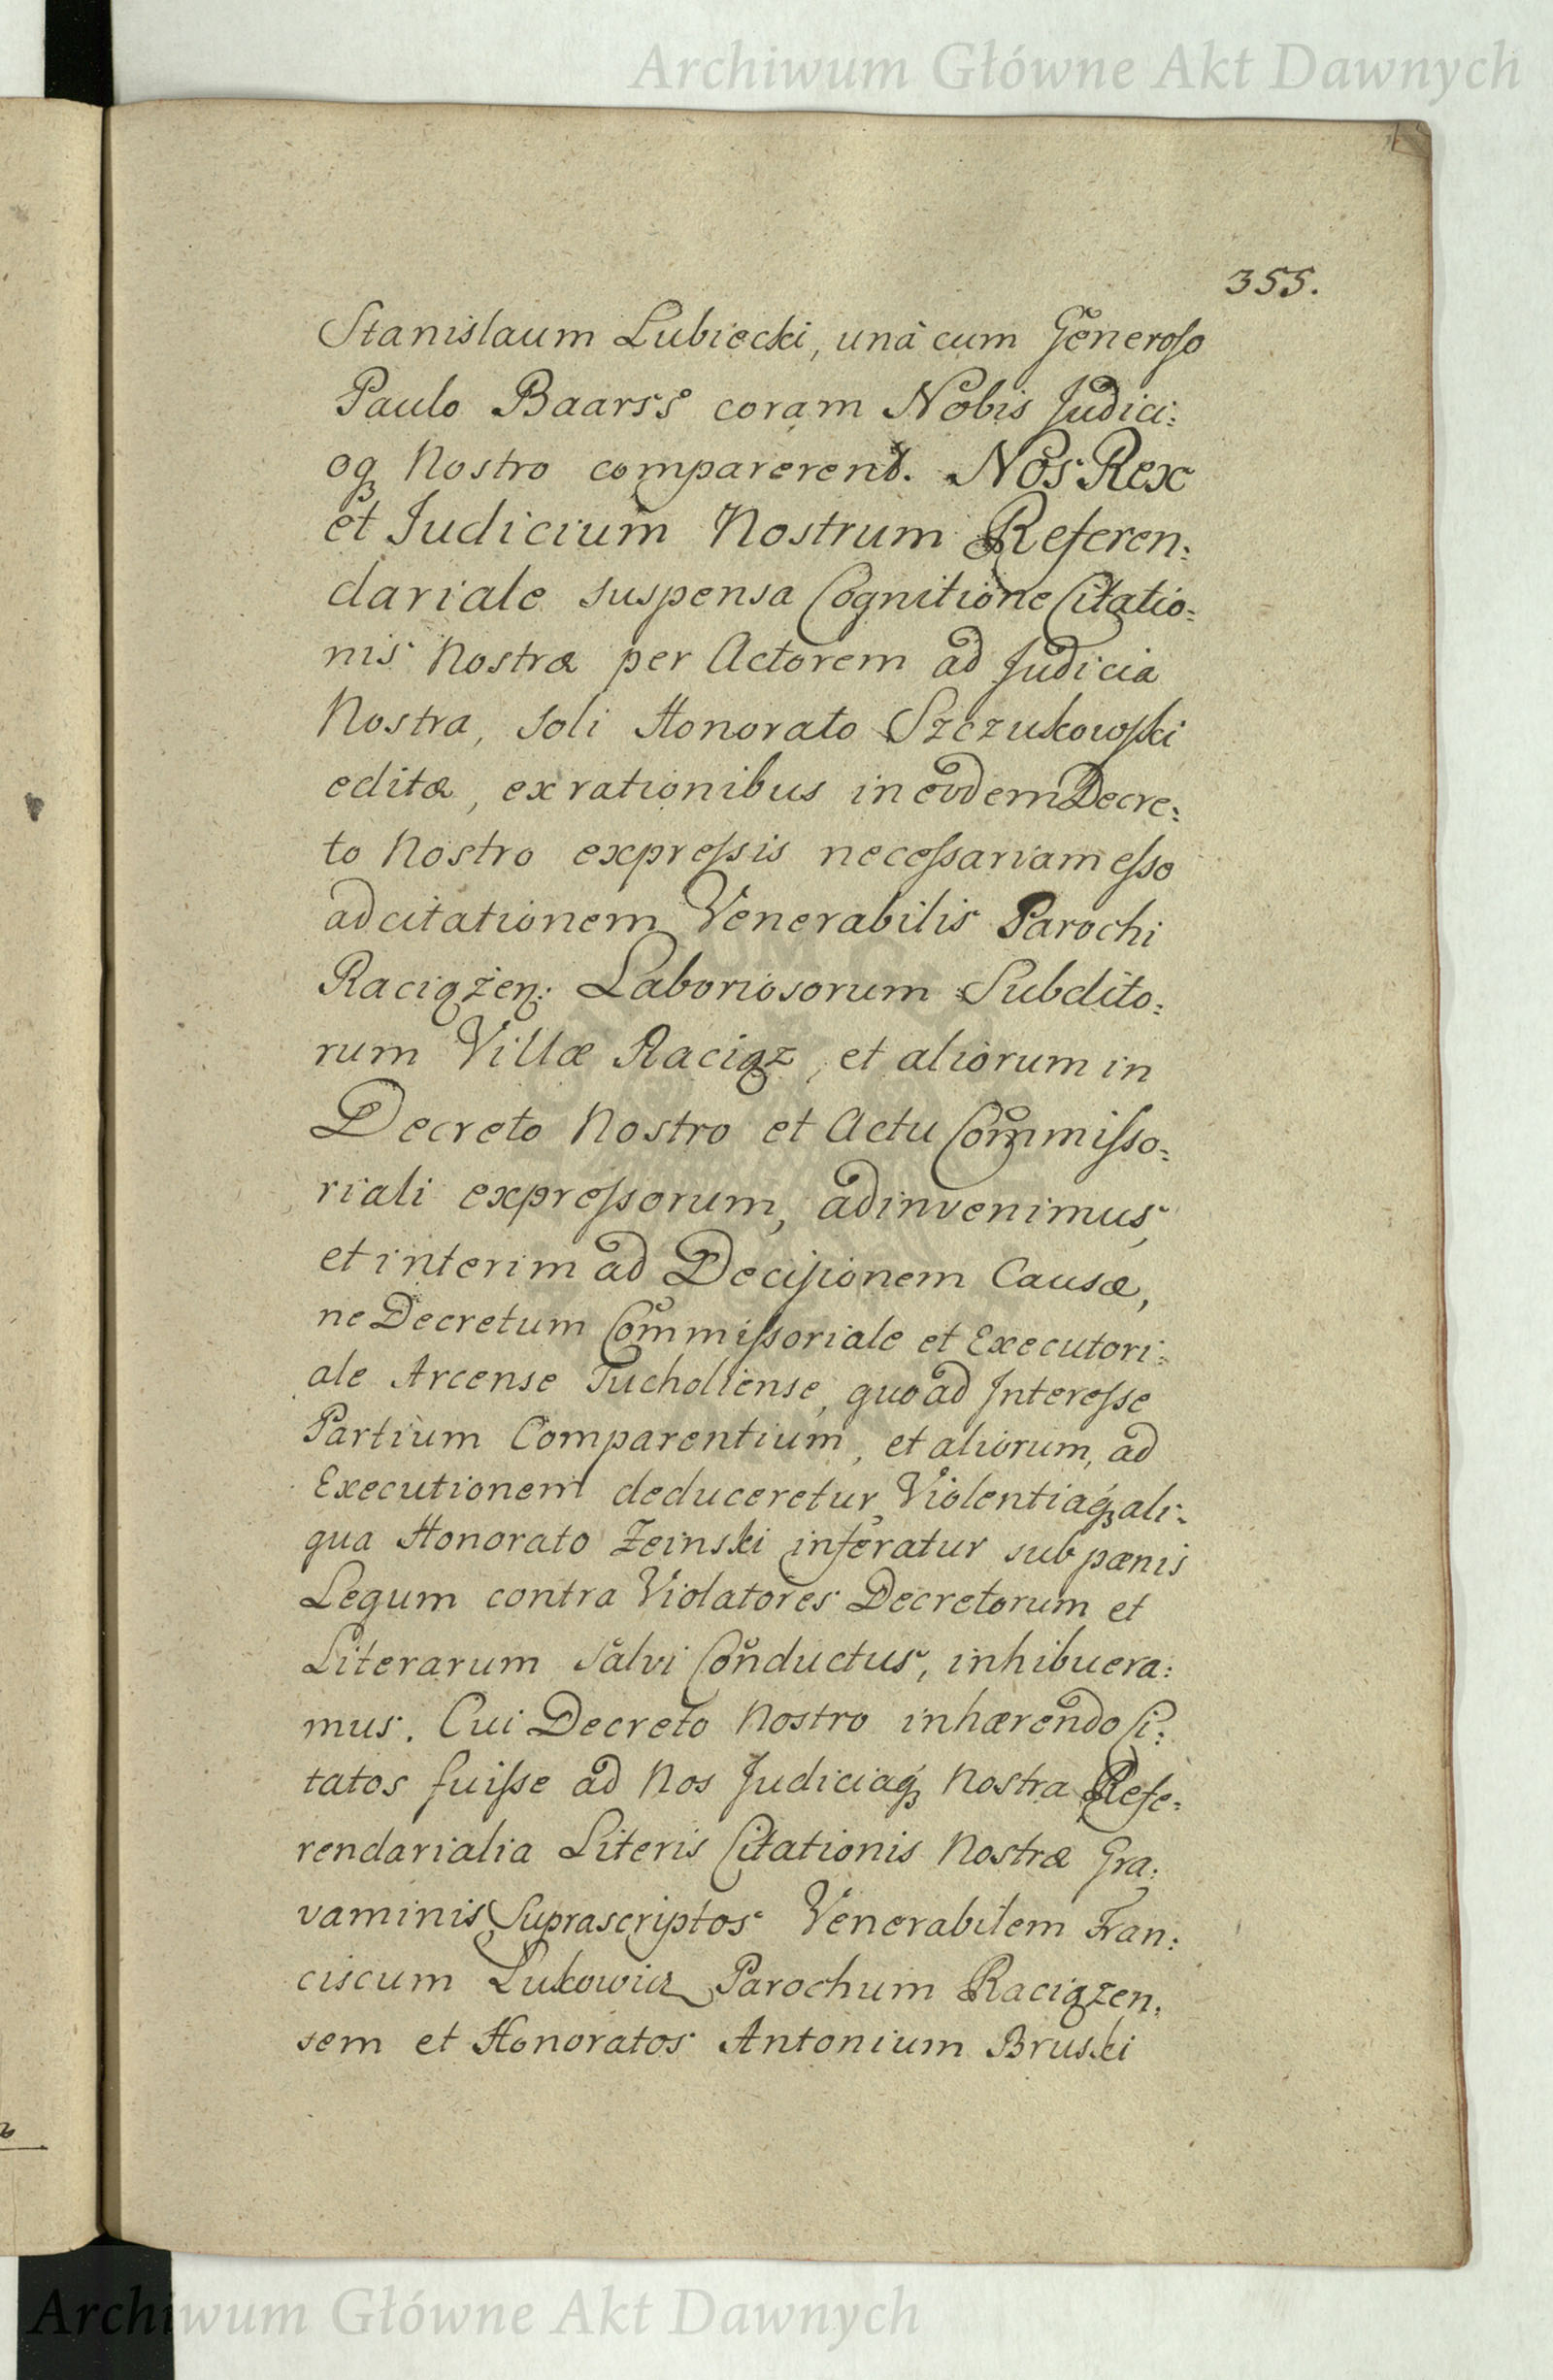 Archiwum Główne Akt Dawnych
355.
Stanislaum Lubiecki, unà cum Generoso
Paulo Baarss coram Nobis Judici:
oq₃ Nostro comparerent. Nos Rex
et Judicium Nostrum Referen:
dariale suspensa Cognitione Citatio:
nis Nostræ per Actorem ad Judicia
Nostra, soli Honorato Szczukowski
editæ, ex rationibus in eodem Decre:
to Nostro expressis necessariam esse
adcitationem Venerabilis Parochi
Raciążen: Laboriosorum Subdito:
rum Villæ Raciąz, et aliorum in
Decreto Nostro et Actu Commisso:
riali expressorum, adinvenimus,
et interim ad Decisionem Causæ,
ne Decretum Commissoriale et Executori:
ale Arcense Tucholiense, quo ad Interesse
Partium Comparentium, et aliorum, ad
Executionem deduceretur, Violentiaq₃ ali:
qua Honorato Zeinski inferatur sub pænis
Legum contra Violatores Decretorum et
Literarum salvi Conductus, inhibuera:
mus. Cui Decreto Nostro inhærendo Ci:
tatos fuisse ad Nos Judiciaq₃ Nostra Refe:
rendarialia Literis Citationis Nostræ Gra:
vaminis Suprascriptos Venerabilem Fran:
ciscum Lukowicz Parochum Raciązen:
sem et Honoratos Antonium Bruski
Archiwum Główne Akt Dawnych